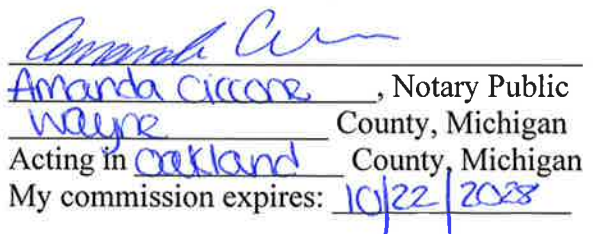 Amanda Ciccone
Amanda Ciccone, Notary Public
Wayne County, Michigan
Acting in Oakland County, Michigan
My commission expires: 10/22/2028